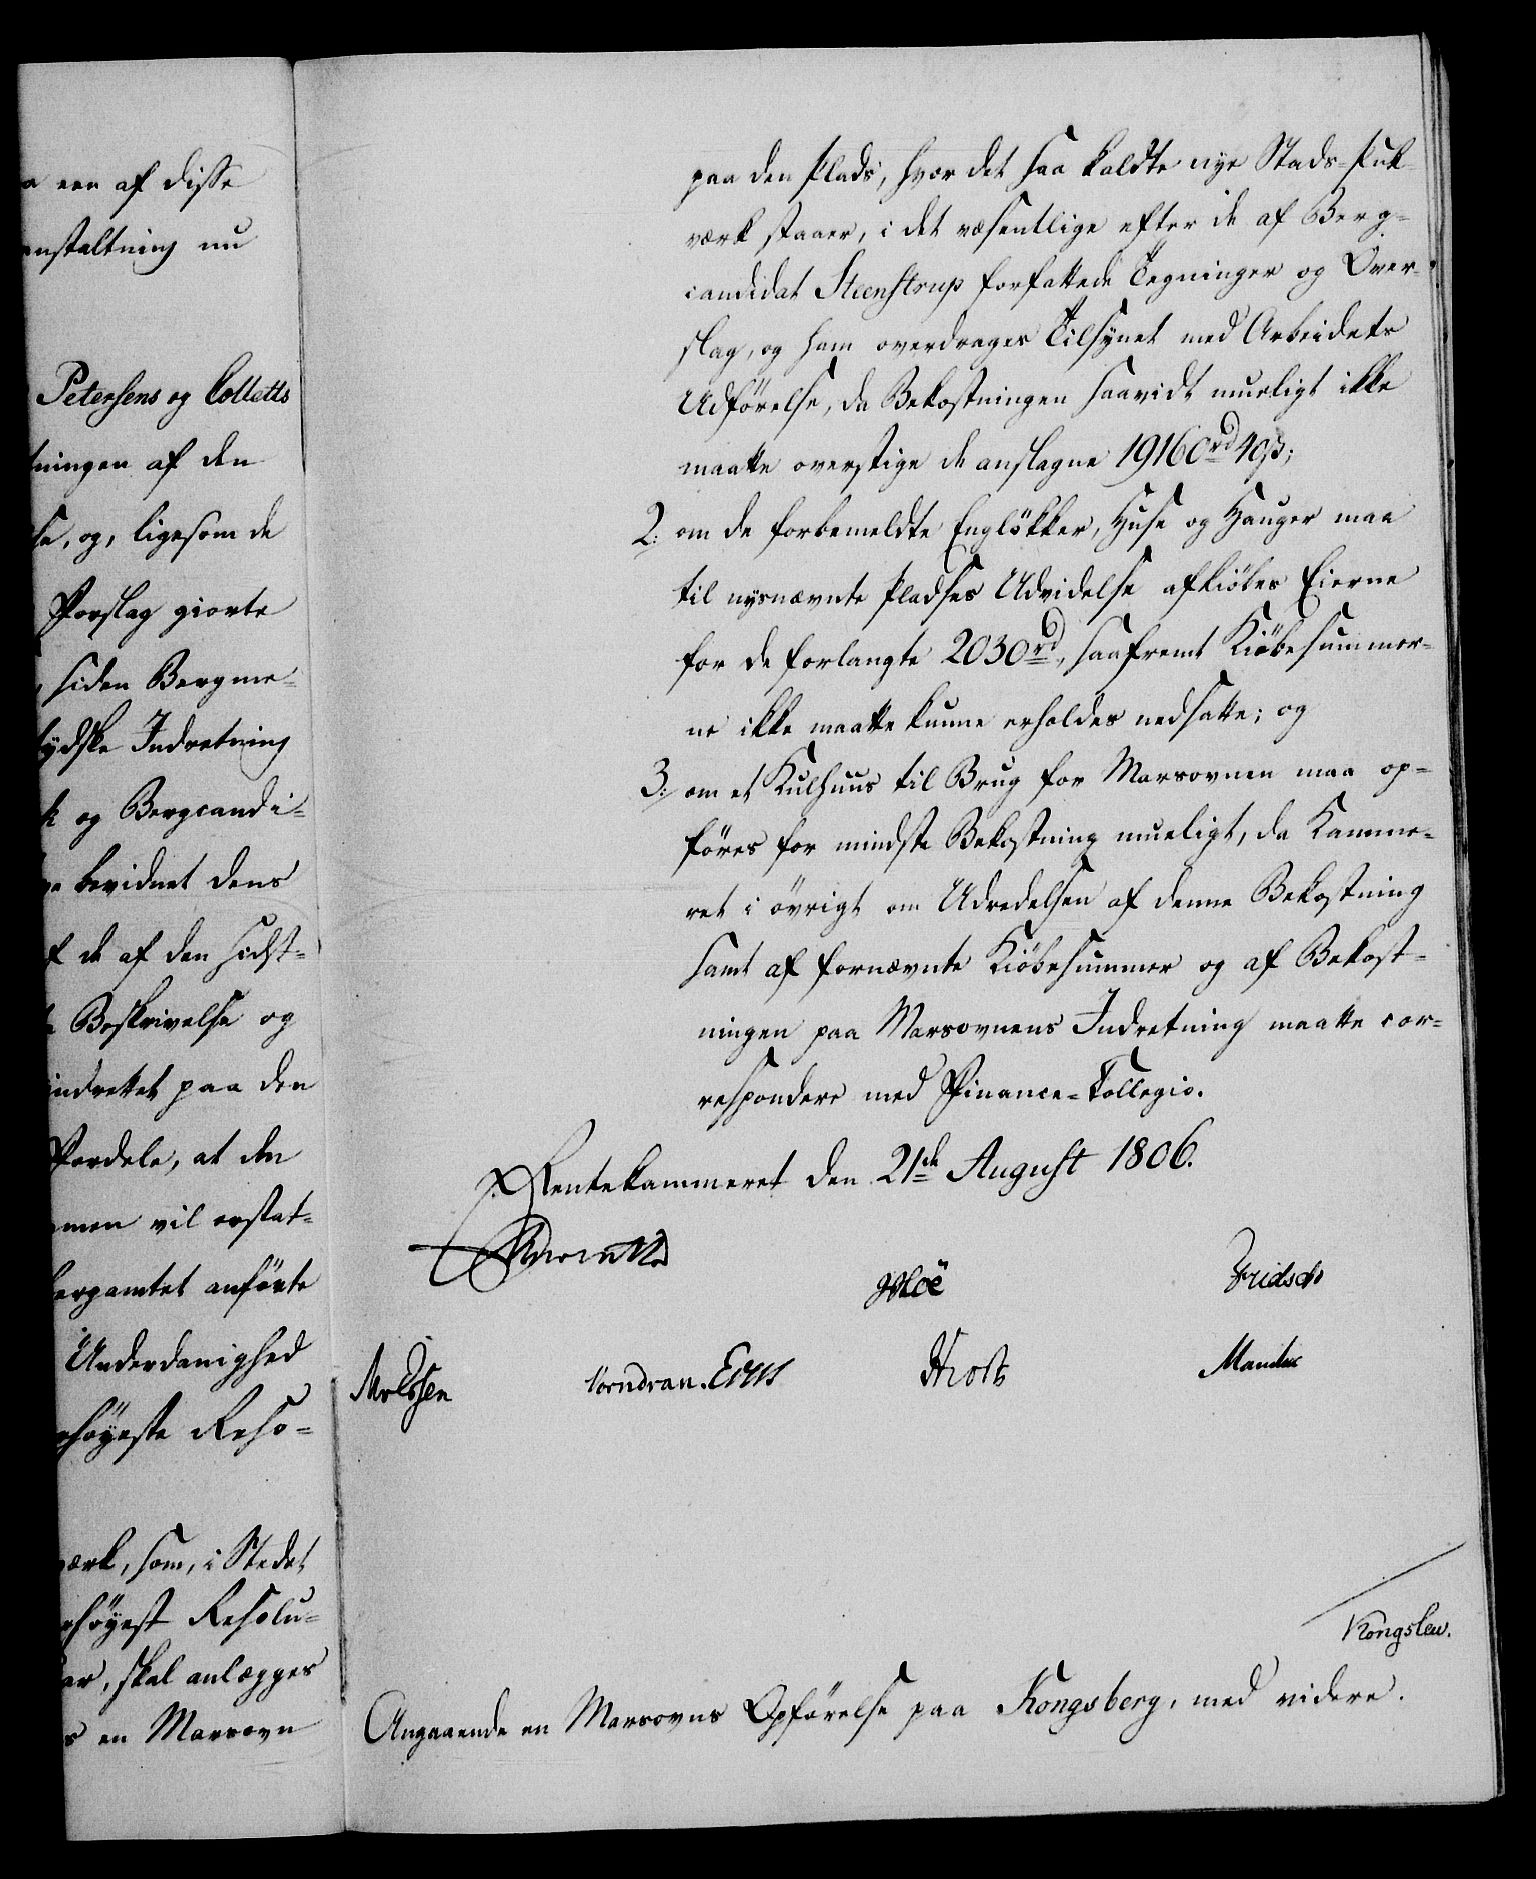 een af disse
anstaltning nu
Petersens og Colletts
tningen af den
se, og, ligesom de
Forslag giorte
, siden Bergme=
tydske Indretning
k og Bergcandi=
bevidnet dens
f de af den sidst=
Beskrivelse og
indrettet paa den
Fordele, at den
men vil erstat=
Bergamtet anförte
Underdanighed
rhöyeste Reso=
værk, som, i Stedet
rhöyest Resolu=
ar, skal anlægges
s en Marsovn
paa den Plads, hvor det saa kaldte nye Stads-Puk-
værk staaer, i det væsentlige efter de af Berg-
candidat Steenstrup forfattede Tegninger og Over-
slag, og ham overdrages Tilsynet med Arbeidets
Udförelse, da Bekostningen saavidt mueligt ikke
maatte overstige de anslagne 19160 rd 40 ß;
2. om de forbemeldte Englökker, Huse og Hauger maa
til nysnævnte Pladses Udvidelse afkiöbes Eierne
for de forlangte 2030 rd, saafremt Kiöbesummer-
ne ikke maatte kunne erholdes nedsatte; og
3. om et Kulhuus til Brug for Marsovnen maa op=
föres for mindste Bekostning mueligt, da Kamme-
ret i övrigt om Udredelsen af denne Bekostning
samt af fornævnte Kiöbesummer og af Bekost-
ningen paa Marsovnens Indretning maatte cor=
respondere med Finance=Collegio.
Rentekammeret den 21de August 1806.
Moë Fridsch
Vorndran. Knoph
Kongslew.
Angaaende en Marsovns Opförelse paa Kongsberg, med videre.